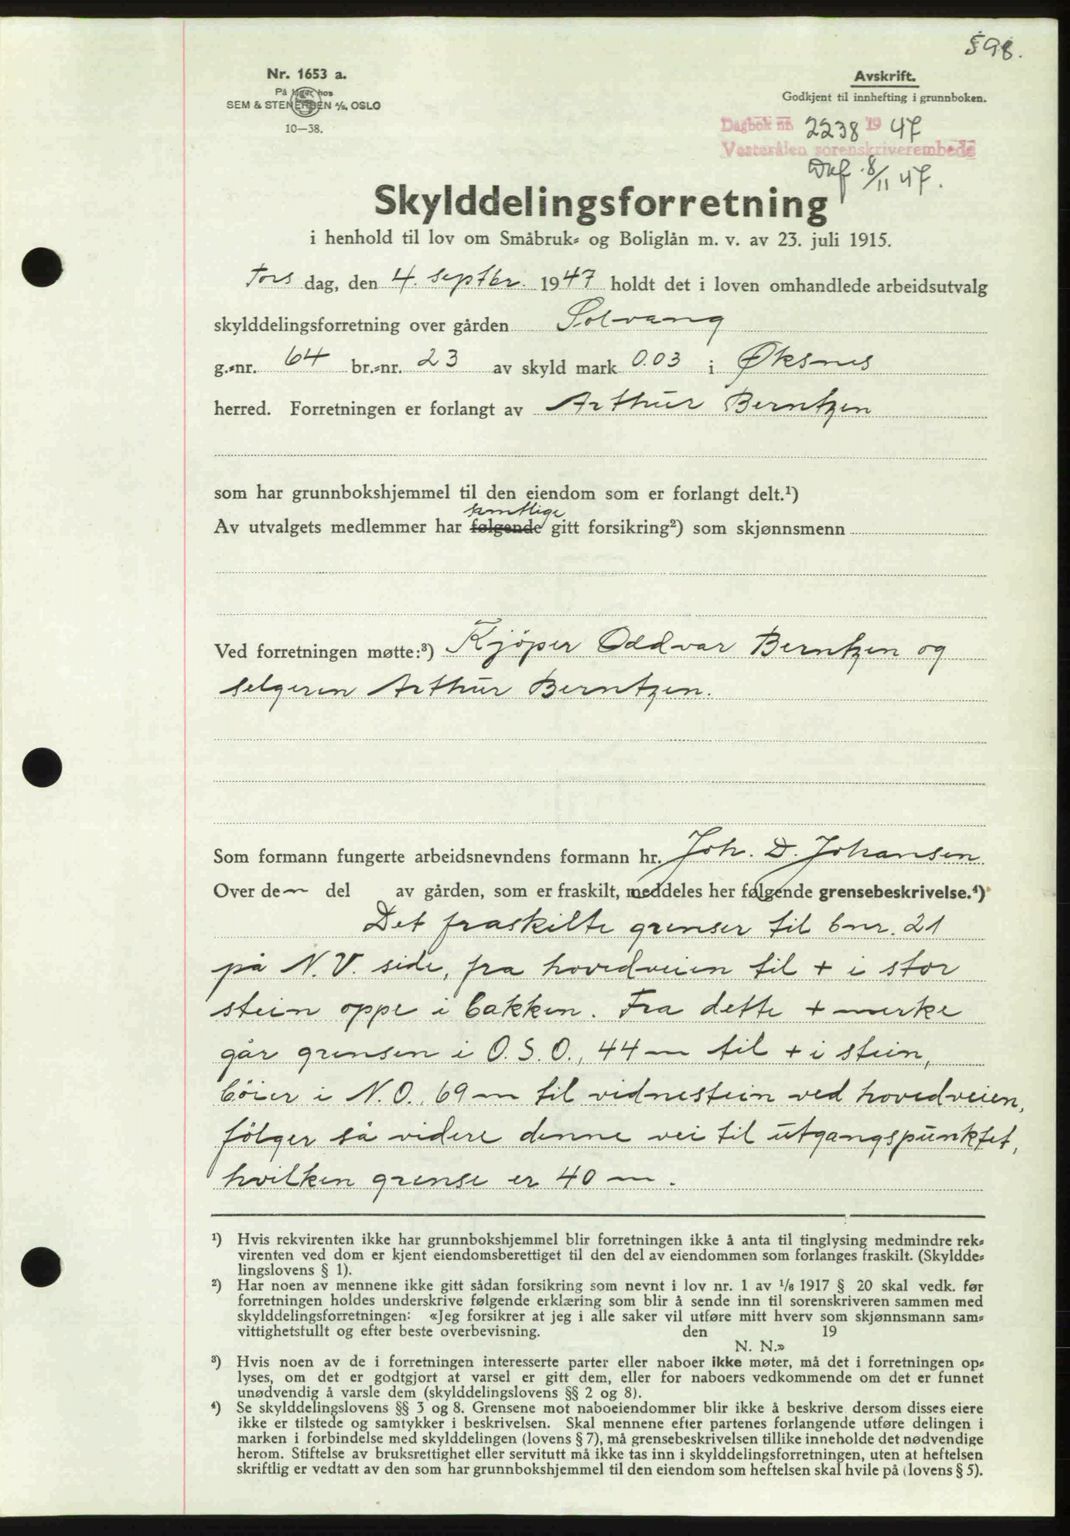 598.
Nr. 1653 a.
På lager hos
SEM & STENERSEN A/S, OSLO
10—38.
Avskrift.
Godkjent til innhefting i grunnboken.
Dagbok nr. 2238 19 47
Vesterålen sorenskriverembede
8/11 47.
Skylddelingsforretning
i henhold til lov om Småbruk- og Boliglån m. v. av 23. juli 1915.
Tors dag, den 4. septbr. 1947 holdt det i loven omhandlede arbeidsutvalg
skylddelingsforretning over gården Solvang
g.-nr. 64 br.-nr. 23 av skyld mark 0.03 i Øksnes
herred. Forretningen er forlangt av Arthur Berntzen
som har grunnbokshjemmel til den eiendom som er forlangt delt.¹)
samtlige
Av utvalgets medlemmer har følgende gitt forsikring²) som skjønnsmenn
Ved forretningen møtte:³) Kjöper Oddvar Berntzen og
selgeren Arthur Berntzen.
Som formann fungerte arbeidsnevndens formann hr. Joh. D. Johansen
Over den del av gården, som er fraskilt, meddeles her følgende grensebeskrivelse.⁴)
Det fraskilte grenser til bnr. 21
på N.V. side, fra hovedveien til + i stor
stein oppe i bakken. Fra dette + merke
går grensen i O.S.O., 44 m til + i stein,
böier i N.O. 69 m til vidnestein ved hovedveien,
følger så videre denne vei til utgangspunktet,
hvilken grense er 40 m.
¹) Hvis rekvirenten ikke har grunnbokshjemmel blir forretningen ikke å anta til tinglysing medmindre rek-
virenten ved dom er kjent eiendomsberettiget til den del av eiendommen som forlanges fraskilt. (Skyldde-
lingslovens § 1).
²) Har noen av mennene ikke gitt sådan forsikring som nevnt i lov nr. 1 av ¹/₈ 1917 § 20 skal vedk. før
forretningen holdes underskrive følgende erklæring som blir å sende inn til sorenskriveren sammen med
skylddelingsforretningen: «Jeg forsikrer at jeg i alle saker vil utføre mitt hverv som skjønnsmann sam-
vittighetsfullt og efter beste overbevisning. den 19
N. N.»
³) Hvis noen av de i forretningen interesserte parter eller naboer ikke møter, må det i forretningen op-
lyses, om det er godtgjort at varsel er gitt dem, eller for naboers vedkommende om det er funnet
unødvendig å varsle dem (skylddelingslovens §§ 2 og 8).
⁴) Se skylddelingslovens §§ 3 og 8. Grensene mot naboeiendommer blir ikke å beskrive dersom disses eiere
ikke er tilstede og samtykker i beskrivelsen. Skal mennene efter partenes forlangende utføre delingen i
marken i forbindelse med skylddelingen (lovens § 7), må grensebeskrivelsen tillike inneholde det nødvendige
herom. Stiftelse av bruksrettighet eller servitutt må ikke tas inn i skylddelingsforretningen, uten at heftelsen
skriftlig er vedtatt av den som har grunnbokshjemmel til den eiendom som heftelsen skal hvile på (lovens § 5).